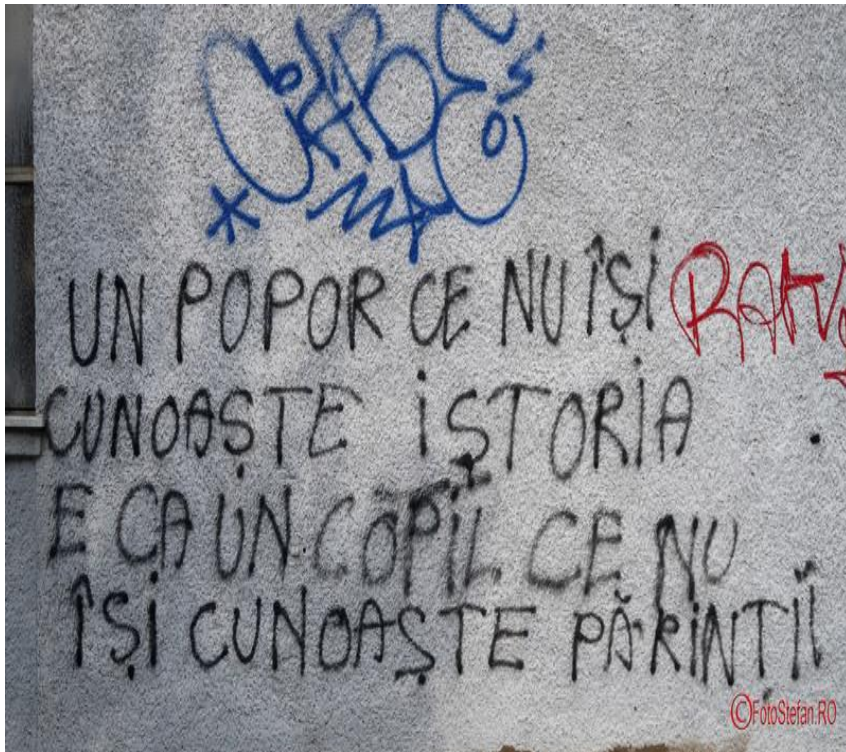 UN POPOR CE NU ÎȘİ
CUNOAȘTE İȘTORİA
E CA UN COPİL CE NU
ÎȘİ CUNOAȘTE PĂRİNȚİİ
©FotoStefan.RO